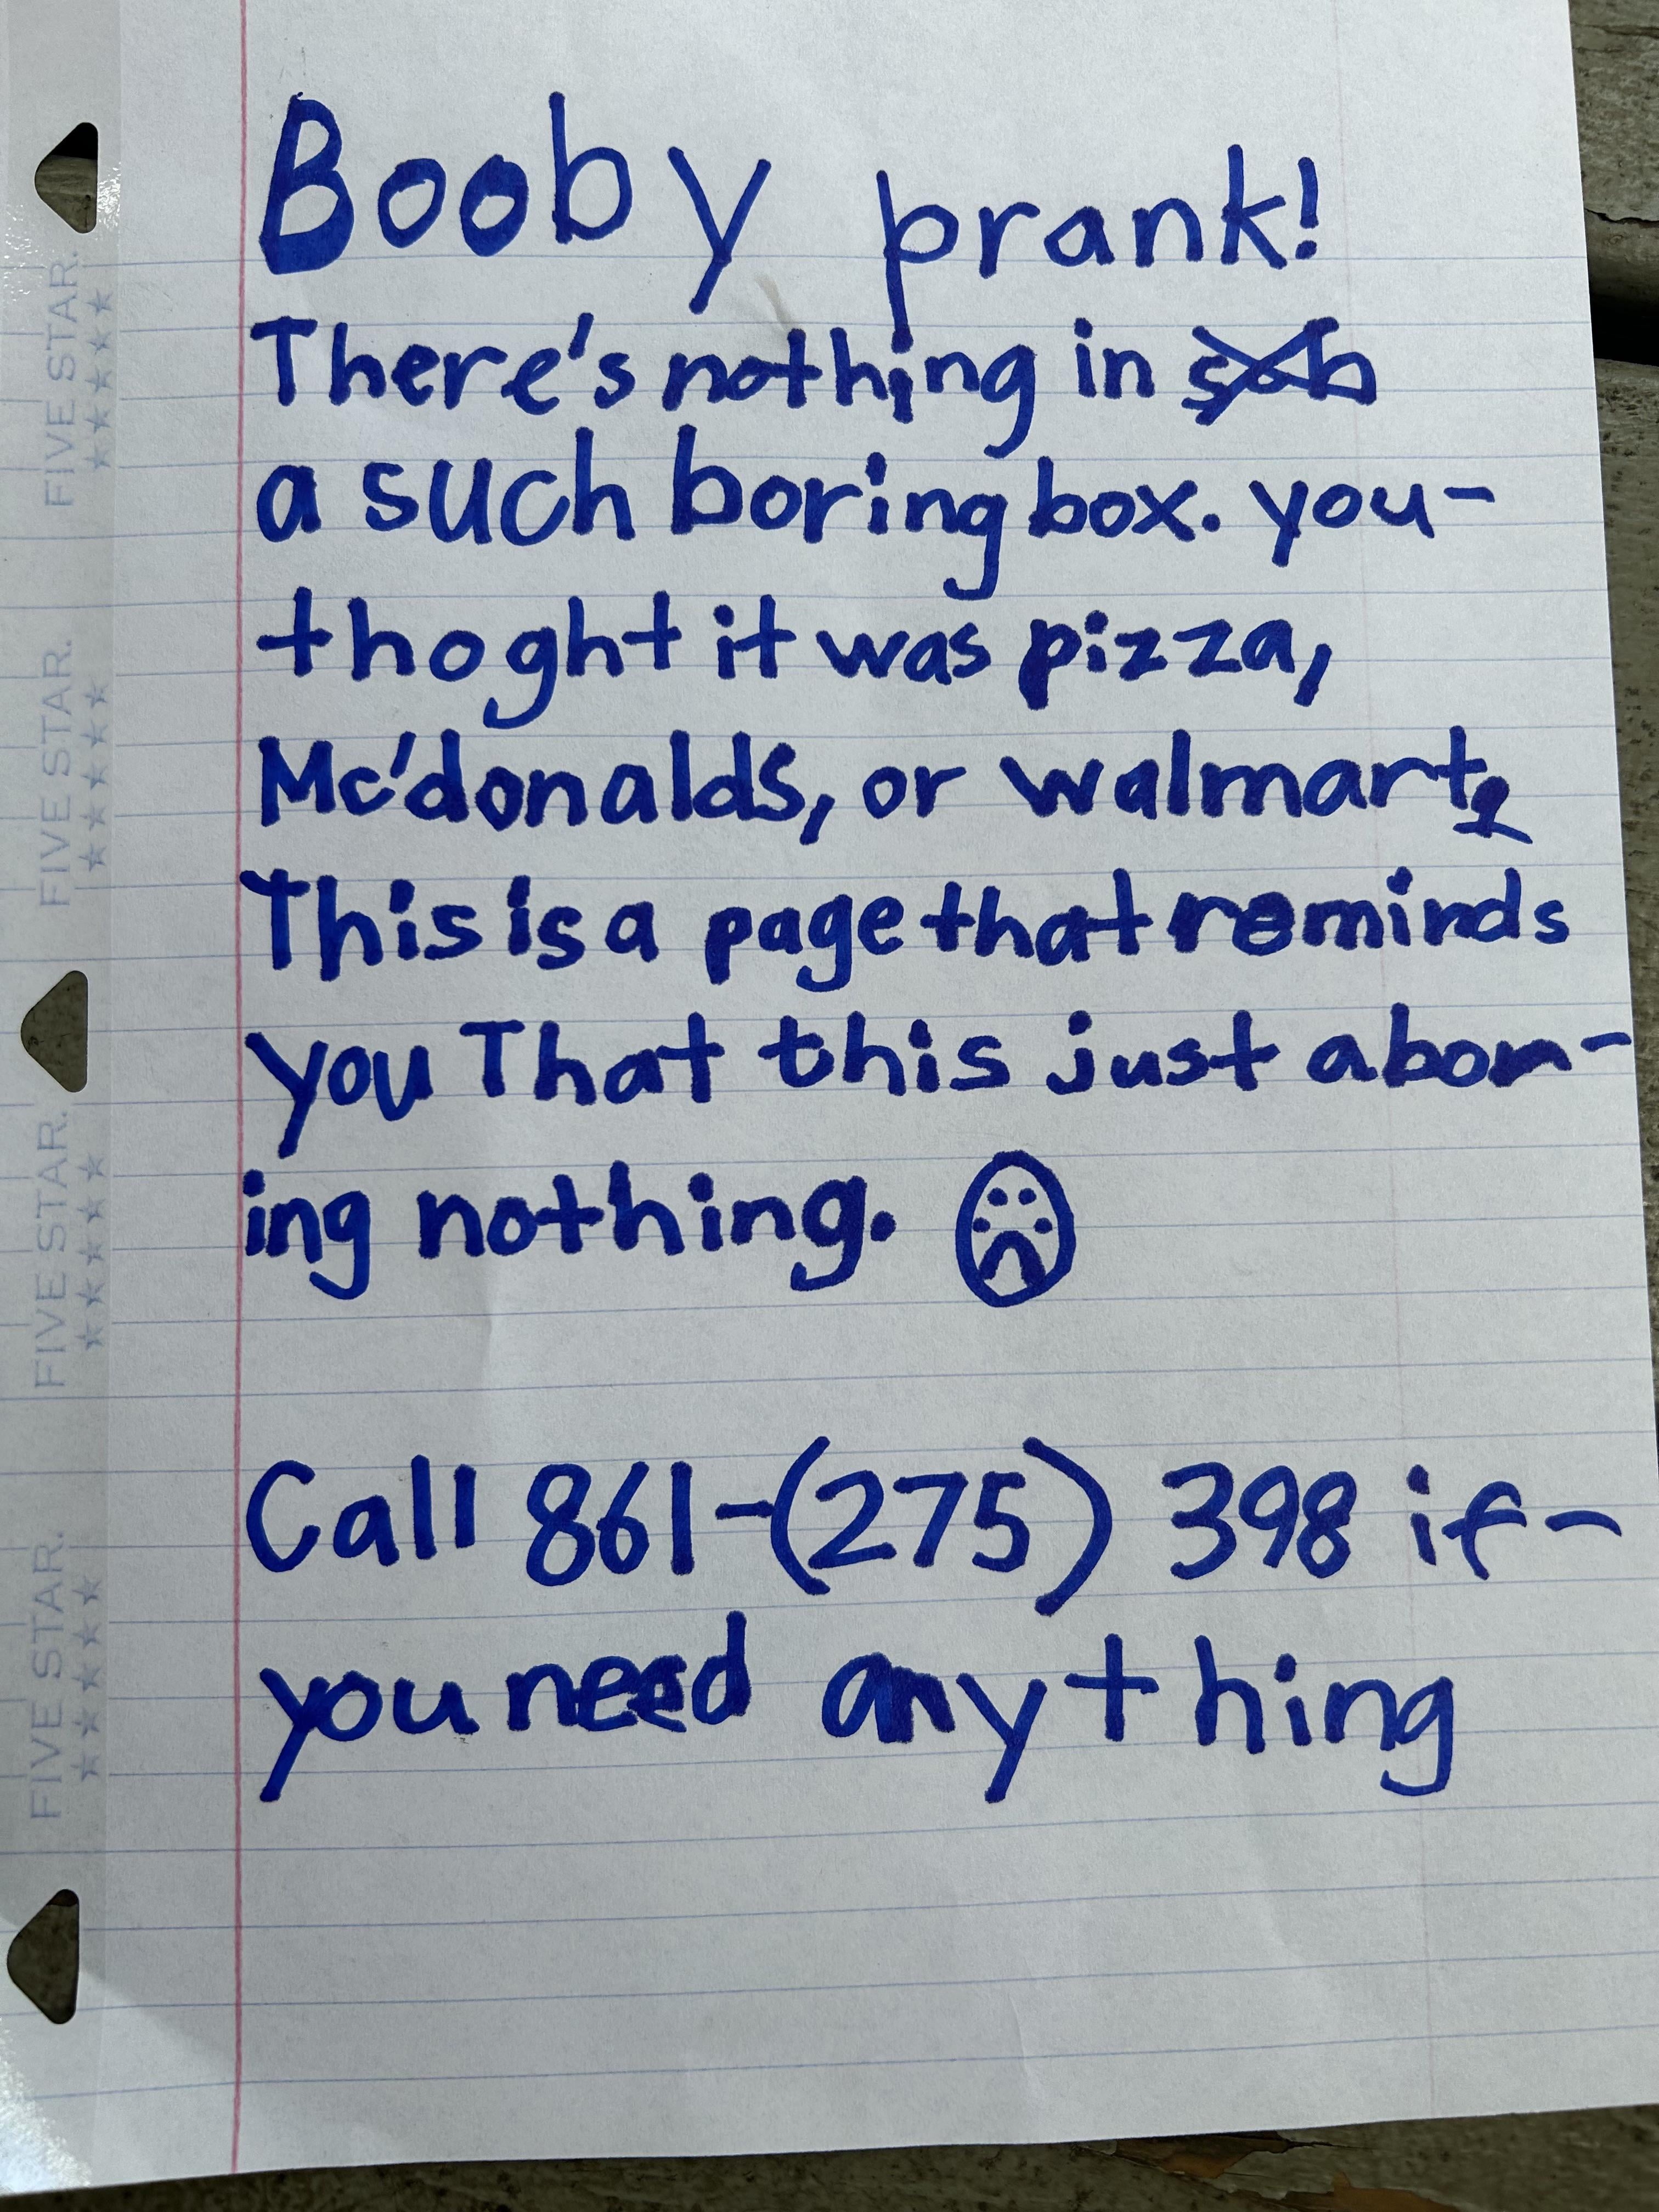 Booby prank!
There's nothing in
a such boring box. you-
thoght it was pizza,
Mc'donalds, or walmart?
This is a page that reminds
you That this just abor-
ing nothing.
Call 861-(275) 398 if-
you need anything
FIVE STAR.
FIVE STAR.
FIVE STAR.
FIVE STAR.